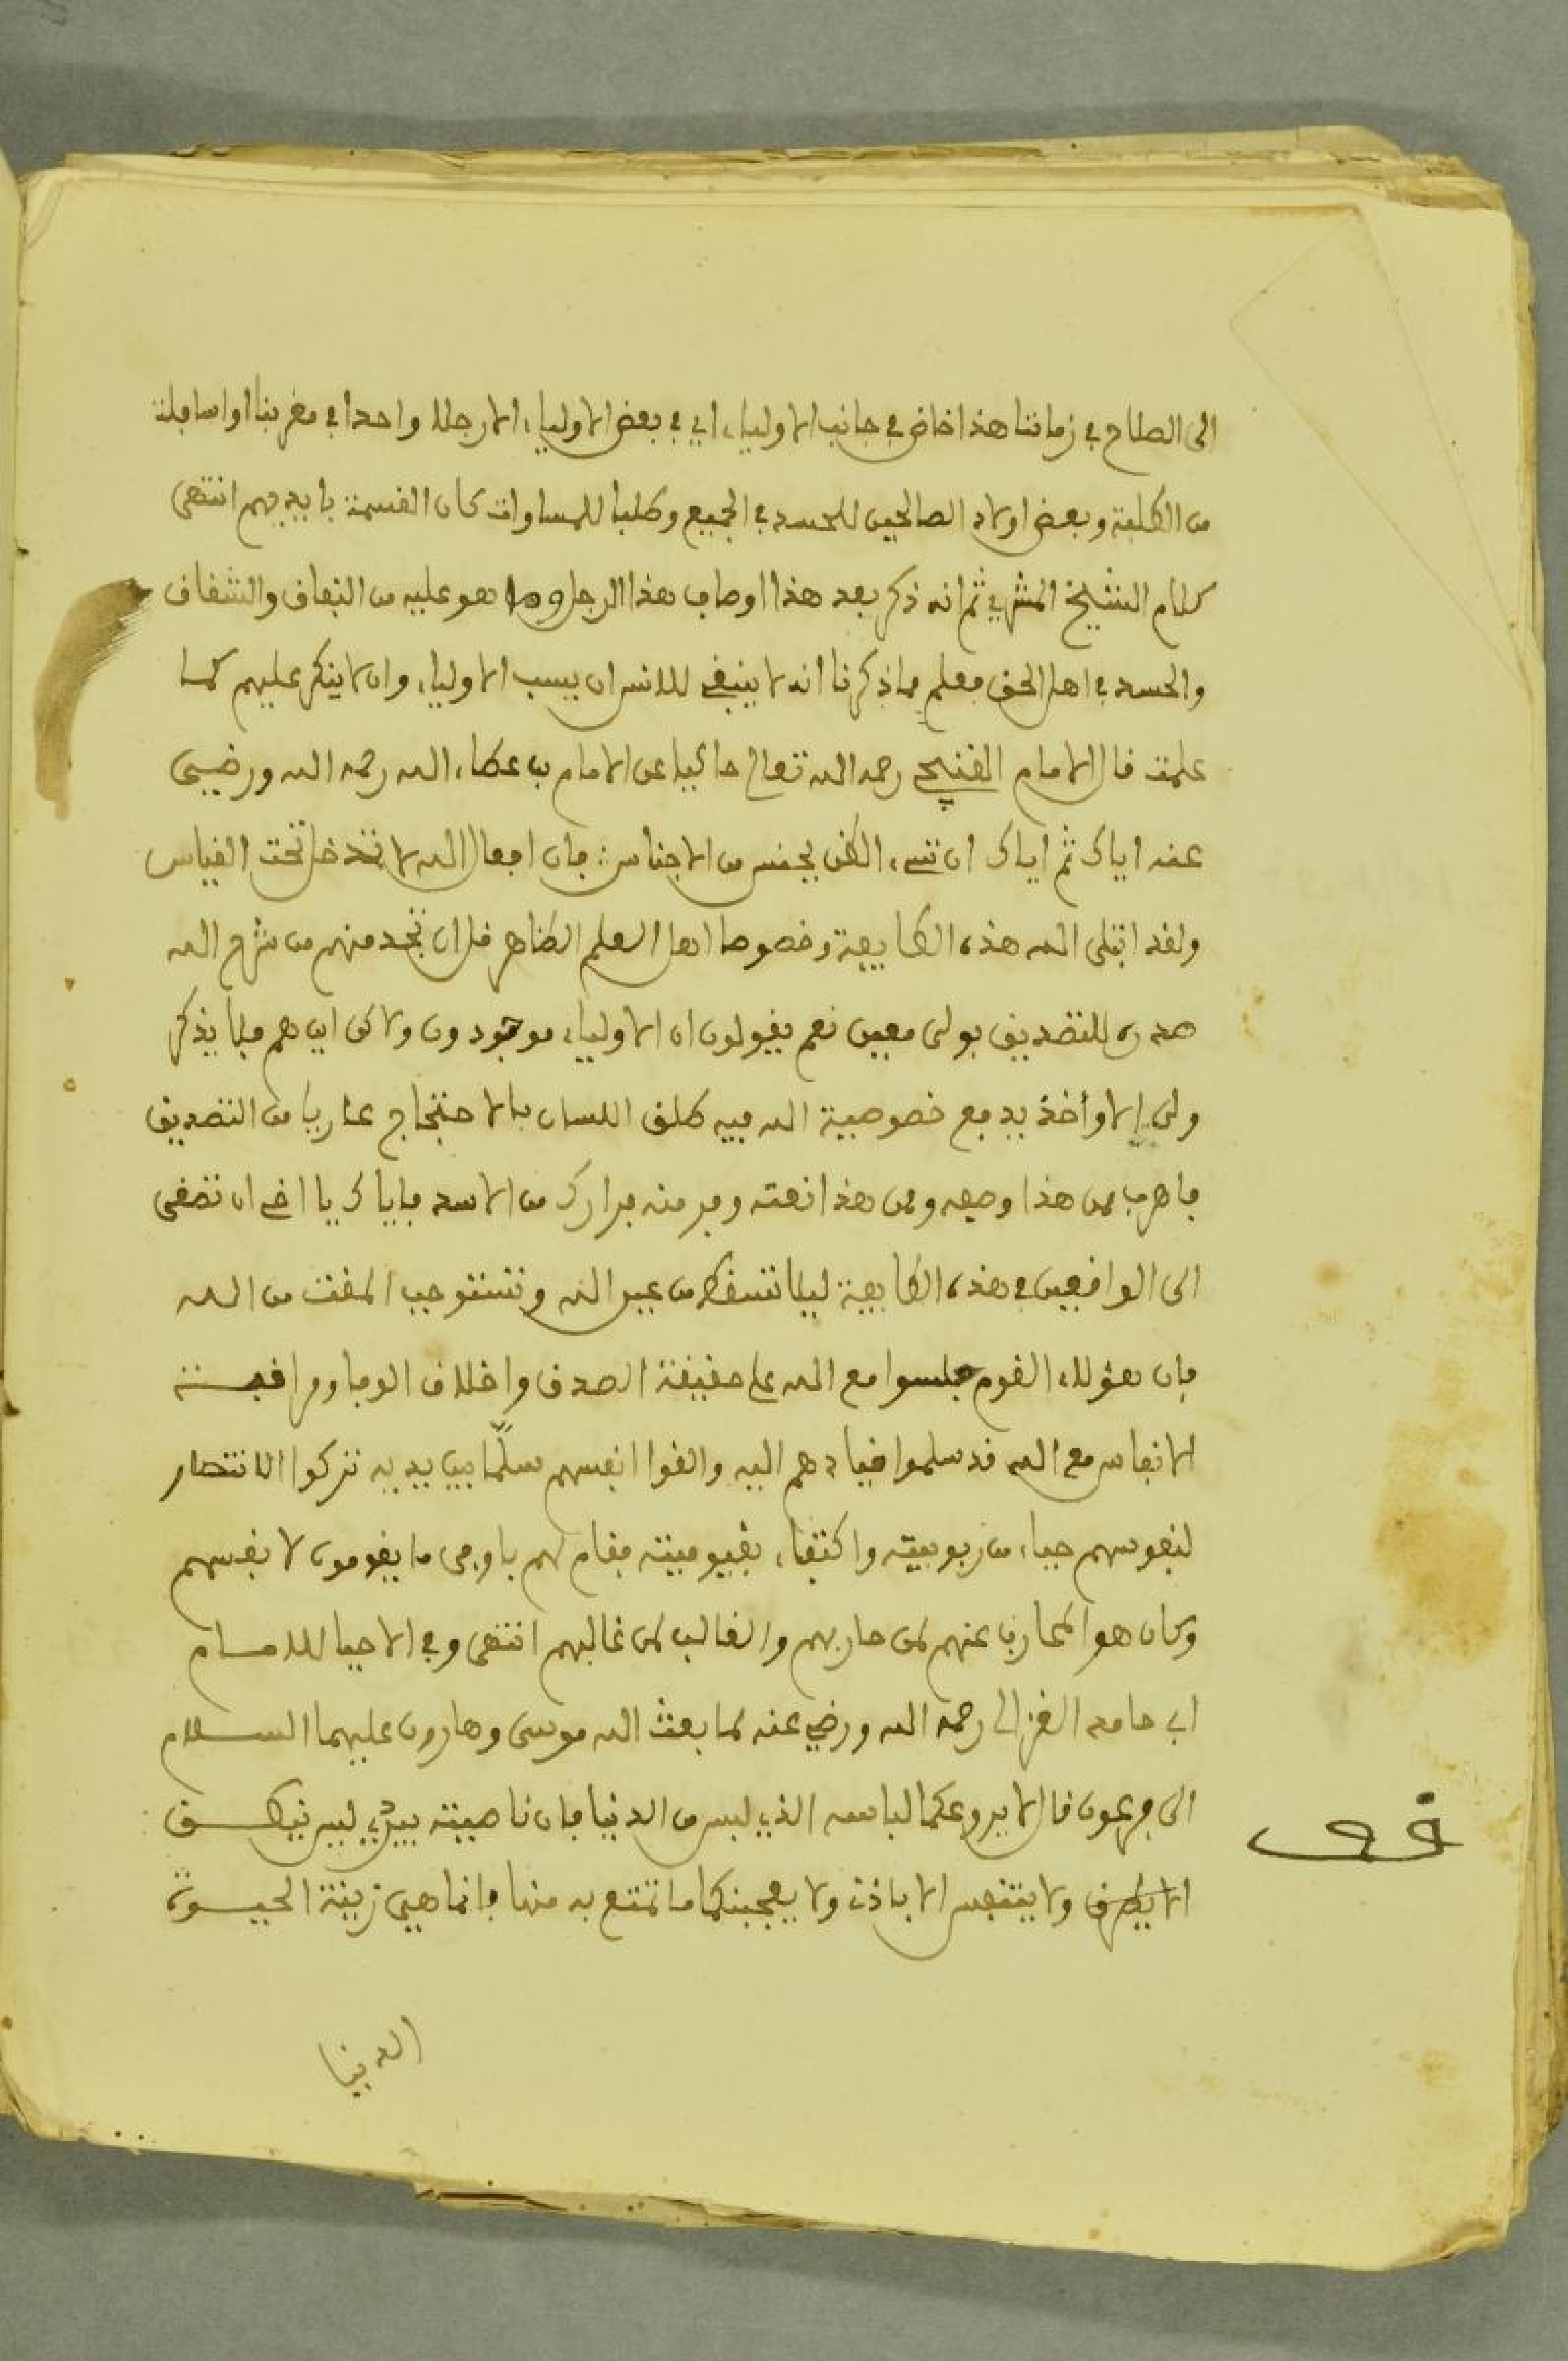 الى الصلاح في زماننا هذا خاض في جانب الاولياء اي في بعض الاولياء الا رجلا واحدا في مغربنا او اسافلة
من الطلبة وبعض اولاد الصالحين للحسد في الجميع وطلبا للمساوات كان القسمة بايديهم انتهى
كلام الشيخ ثم انه ذكر بعد هذا اوصاف هذا الرجل وما هو عليه من النفاق والشقاق
والحسد في اهل الحق فعلم مما ذكرنا انه لا ينبغي للانس ان يسب الاولياء وان لا ينكر عليهم كما
علمت قال الامام رحمه الله تعالى حاكيا عن الامام بن عطاء الله رحمه الله ورضي
عنه اياك ثم اياك ان تسيء الظن بجنس من الاجناس فان افعال الله لا تدخل تحت القياس
ولقد ابتلى الله هذه الطايفة وخصوصا اهل العلم الظاهر قل ان تجد منهم من شرح الله
صدره للتصديق بولي معين نعم يقولون ان الاولياء موجودون ولاكن اين هم فلا يذكر
ولي الا وأخذ يدفع خصوصية الله فيه طلق اللسان بالاحتجاج عاريا من التصديق
فاهرب ممن هذا وصفه وممن هذا نعته وفر منه فرارك من الاسد فاياك يا اخي ان تصغى
الى الواقعين في هذه الطايفة ليلا تسقط من عين الله وتستوجب المقت من الله
فان هؤلاء القوم جلسوا مع الله على حقيقة الصدق واخلاق الوفا ومراقبة
الانفاس مع الله قد سلموا قيادهم اليه والقوا انفسهم سلمًا بين يديه تركوا الانتصار
لنفوسهم حياء من ربوبيته واكتفاء بقيوميته فقام لهم باوفى ما يقومون لانفسهم
وكان هو المحارب عنهم لمن حاربهم والغالب لمن غالبهم انتهى وفي الاحيا للامام
ابي حامد الغزالي رحمه الله ورضي عنه لما بعث الله موسى وهارون عليهما السلام
الى فرعون قال لا يروعكما لباسه الذي لبس من الدنيا فان ناصيته بيدي ليس ينطق
ولا يطرف ولا يتنفس الا باذني ولا يعجبنكما ما تمتع به منها فانما هي زينة الحيوة
قف
الدنيا